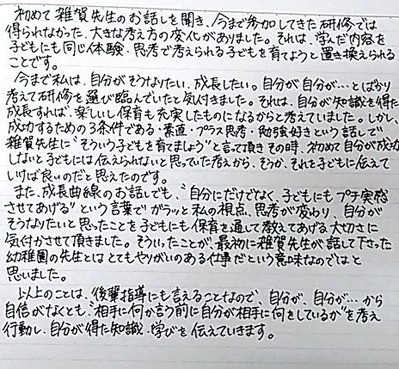 初めて雑賀先生のお話しを聞き、今まで参加してきた研修では
得られなかった、大きな考え方の変化がありました。それは、学んだ内容を
子どもにも同じ体験・思考で考えられる子どもを育てようと置き換えられる
ことです。
今まで私は、自分がそうなりたい、成長したい。自分が自分が…とばかり
考えて研修を選び臨んでいたと気付きました。それは、自分が知識を得た
成長すれば、楽しいし保育も充実したものになるからと考えていました。しかし、
成功するための3条件である・素直・プラス思考・勉強好きという話しで
雑賀先生に"そういう子を育てましょう"と言って頂きその時、初めて自分が成功
しないと子どもには伝えられないと思っていた考えから、そうか、それを子どもに伝えて
いけば良いのだと思えたのです。
また、成長曲線のお話しでも、"自分にだけでなく、子どもにもプチ実感
させてあげる"という言葉でガラッと私の視点、思考が変わり、自分が
そうなりたいと思ったことを子どもにも保育を通して教えてあげる大切さに
気付かさせて頂きました。そういったことが、最初に雑賀先生が話して下さった
幼稚園の先生とはとてもやりがいのある仕事だという意味なのではと
思いました。
以上のことは、後輩指導にも言えることなので、自分が、自分が…から
自信がなくとも、"相手に何か言う前に自分が相手に何をしているか"を考え
行動し、自分が得た知識、学びを伝えていきます。